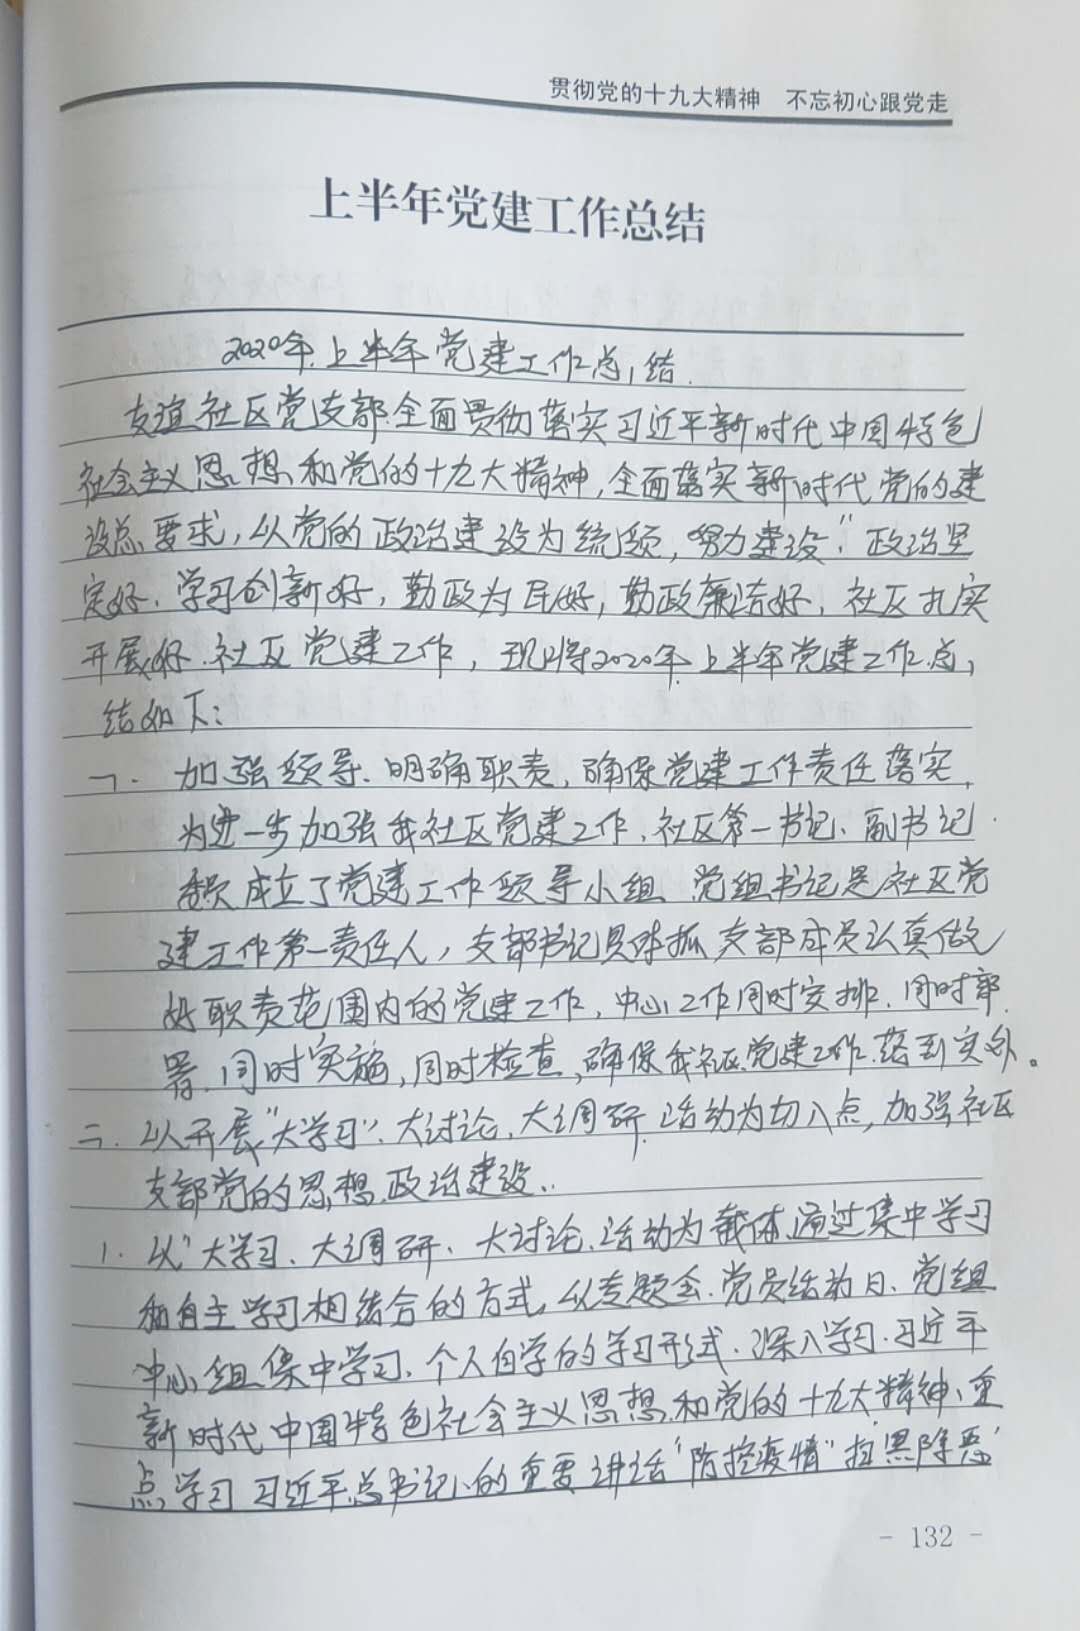 贯彻党的十九大精神 不忘初心跟党走
上半年党建工作总结
2020年上半年党建工作总结
友谊社区党支部全面贯彻落实习近平新时代中国特色
社会主义思想和党的十九大精神,全面落实新时代党的建
设总要求,以党的政治建设为统领,努力建设“政治坚
定好、学习创新好,勤政为民好,勤政廉洁好,社区扎实
开展好、社区党建工作,现将2020年上半年党建工作总
结如下:
一、加强领导、明确职责,确保党建工作责任落实,
为进一步加强我社区党建工作,社区第一书记、副书记
委员成立了党建工作领导小组 党组书记是社区党
建工作第一责任人,支部书记具体抓 支部成员认真做
好职责范围内的党建工作,中心工作同时安排、同时部
署、同时实施,同时检查,确保我社区党建工作落到实处。
二、以开展“大学习”、大讨论、大调研、活动为切入点,加强社区
支部党的思想政治建设、
1、以“大学习、大调研、大讨论、活动为载体、通过集中学习
和自主学习相结合的方式,以专题会、党员活动日、党组
中心组集中学习、个人自学的学习形式、深入学习习近平
新时代中国特色社会主义思想和党的十九大精神、重
点学习习近平总书记的重要讲话“防控疫情”扫黑除恶”
- 132 -